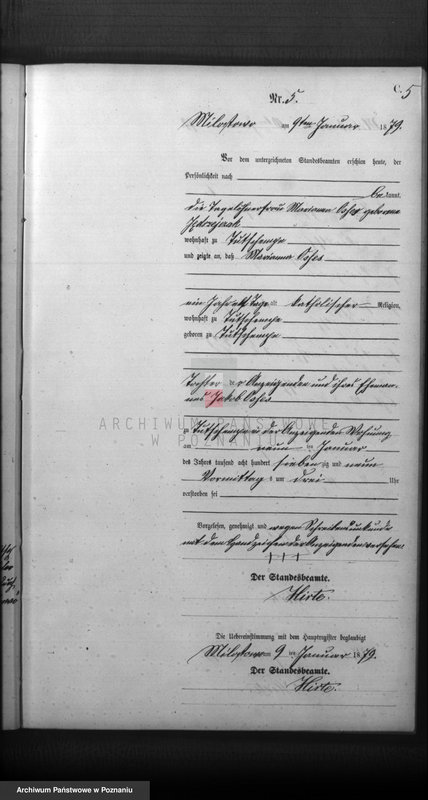 C. 5
Nr. 5.
Milostowo am 9ten Januar 1879.
Vor dem unterzeichneten Standesbeamten erschien heute, der
Persönlichkeit nach
bekannt,
die Tagelöhnerfrau Marianna geborene
wohnhaft zu
und zeigte an, daß Marianna
ein Jahr acht Tage alt, katholischer Religion,
wohnhaft zu
geboren zu
Tochter der Anzeigenden und ihres Eheman-
nes Jakob
ARCHIWUM PAŃSTWOWE
W POZNANIU
zu in der Anzeigenden Wohnung
am neun ten Januar
des Jahres tausend acht hundert siebenzig und neun
Vormittags um drei Uhr
verstorben sei
Vorgelesen, genehmigt und wegen Schreibensunkunde
mit dem Handzeichen der Anzeigenden versehen.
Der Standesbeamte.
Hirte.
Die Uebereinstimmung mit dem Hauptregister beglaubigt
Milostowo am 9 ten Januar 1879.
Der Standesbeamte.
Hirte.
Archiwum Państwowe w Poznaniu